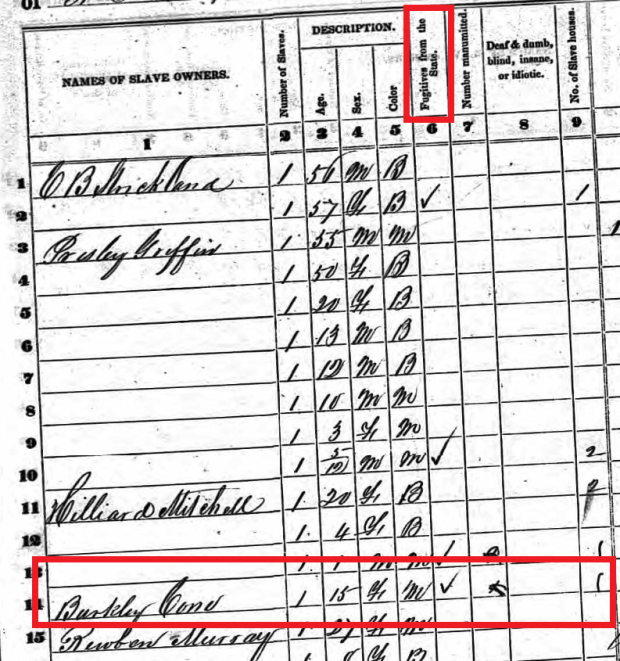 OF
NAMES OF SLAVE OWNERS. Number of Slaves. DESCRIPTION. Age. Sex. Color Fugitives from the State. Number manumitted. Deaf & dumb, blind, insane, or idiotic. No. of Slave houses.
1 2 3 4 5 6 7 8 9
1 C B Strickland 1 56 m B
2 1 57 f B ✓ 1
3 Presley Griffin 1 55 m m
4 1 50 f B
5 1 20 f B
6 1 13 m B
7 1 12 m B
8 1 10 m m
9 1 3 f m
10 1 5/12 m m ✓ 2
11 Hilliard Mitchell 1 20 f B
12 1 4 f B
13 1 1 m m ✓ 1
14 Barkley Cone 1 15 f m ✓ 1
15 Rewben Murray 1 27 f m
1 f B